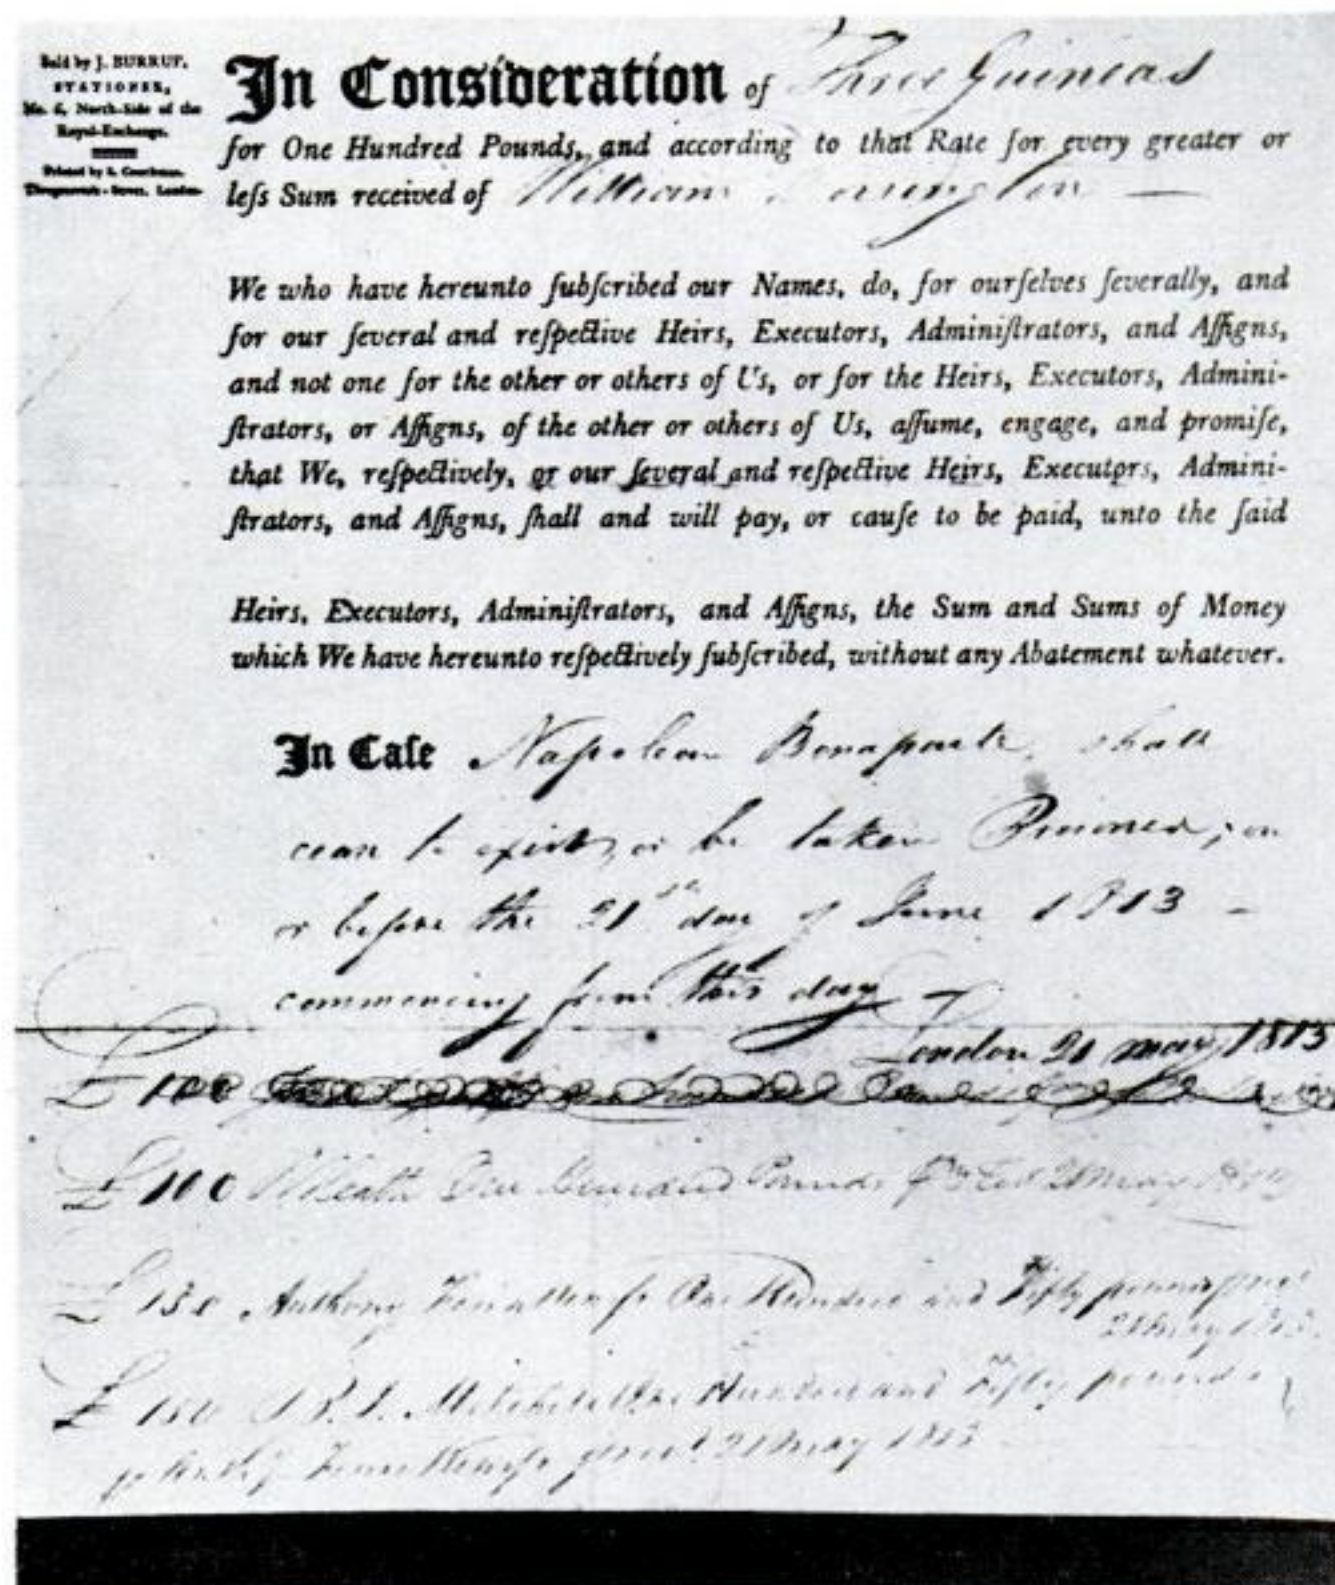 Sold by J. BURRUP,
STATIONER,
No. 6, North-Side of the
Royal-Exchange.
Printed by S. Couchman,
Throgmorton-Street, London
In Consideration of Three Guineas
for One Hundred Pounds, and according to that Rate for every greater or
leſs Sum received of William
We who have hereunto ſubſcribed our Names, do, for ourſelves ſeverally, and
for our ſeveral and reſpective Heirs, Executors, Adminiſtrators, and Aſſigns,
and not one for the other or others of Us, or for the Heirs, Executors, Admini-
ſtrators, or Aſſigns, of the other or others of Us, aſſume, engage, and promiſe,
that We, reſpectively, or our ſeveral and reſpective Heirs, Executors, Admini-
ſtrators, and Aſſigns, ſhall and will pay, or cauſe to be paid, unto the ſaid
Heirs, Executors, Adminiſtrators, and Aſſigns, the Sum and Sums of Money
which We have hereunto reſpectively ſubſcribed, without any Abatement whatever.
In Caſe Napoleon Bonaparte shall
cease to exist, or be taken Prisoner, on
or before the 21st day of June 1813 –
commencing from this day –
London 21 may 1813
£ 100
£ 100 Heath One Hundred Pounds 21 may
£ 150 Anthony One Hundred and Fifty pounds
21 may 1813
£ 150 Hundred and Fifty pounds
21 may 1813